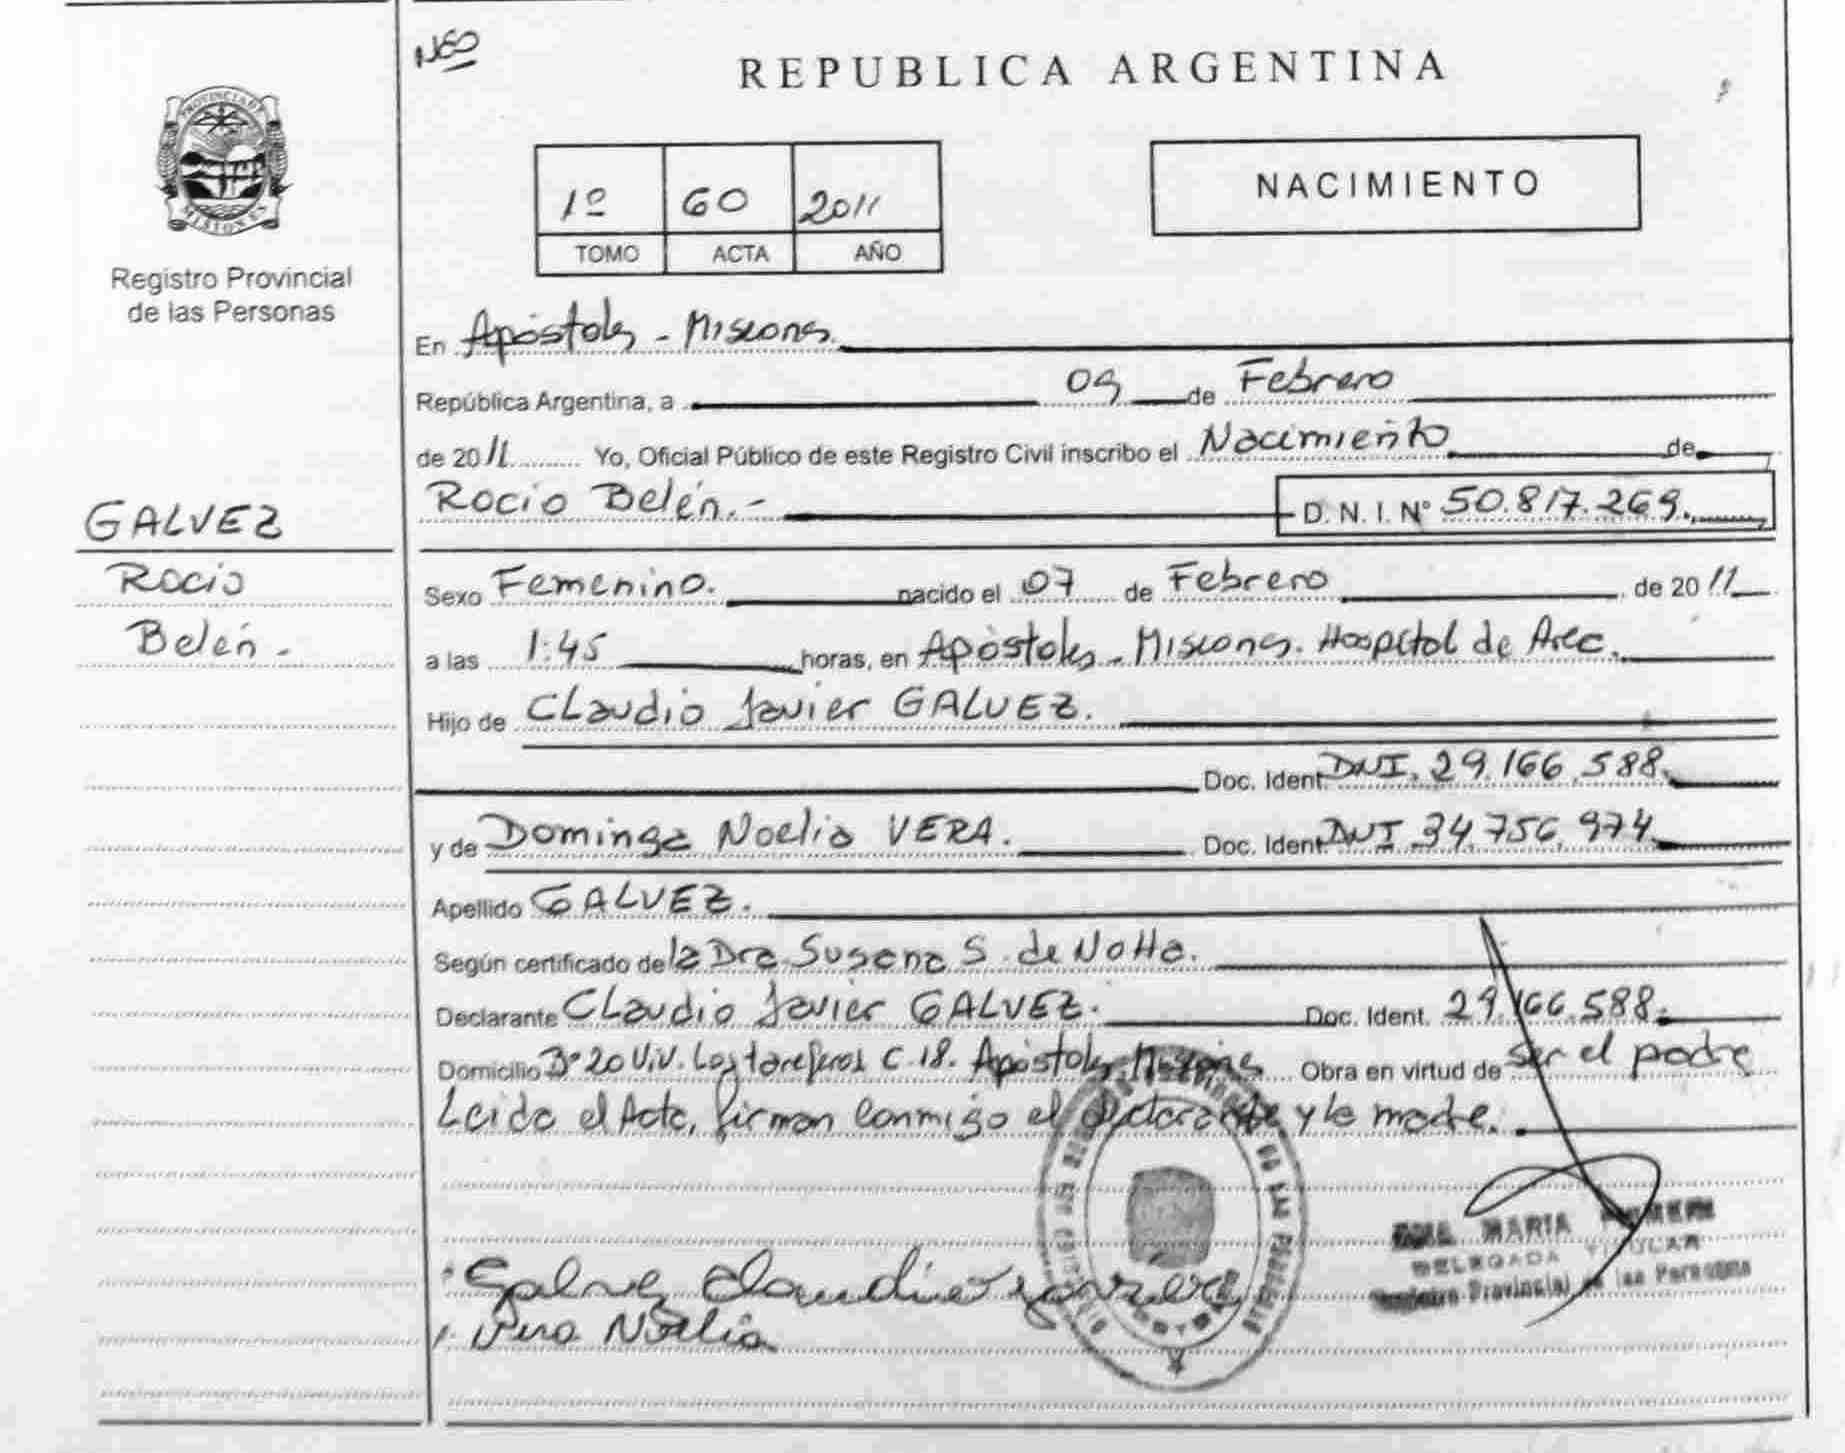 NEO
REPUBLICA ARGENTINA
PROVINCIA DE
MISIONES
Registro Provincial
de las Personas
1º 60 2011
TOMO ACTA AÑO
NACIMIENTO
En Apóstoles - Misiones.
República Argentina, a 09 de Febrero
de 2011 Yo, Oficial Público de este Registro Civil inscribo el Nacimiento de
GALVEZ
Rocio
Belén.-
Rocio Belén.- D. N. I. Nº 50.817.269.
Sexo Femenino. nacido el 07 de Febrero de 2011
a las 1:45 horas, en Apóstoles - Misiones. Hospital de Area.
Hijo de Claudio Javier GALVEZ.
Doc. Ident. DNI. 29.166.588.
y de Dominga Noelia VERA. Doc. Ident. DNI. 34.756.974.
Apellido GALVEZ.
Según certificado de la Dra. Susana S. de Notta.
Declarante Claudio Javier GALVEZ. Doc. Ident. 29.166.588.
Domicilio Bº 20 Viv. Los tareferos C. 18. Apóstoles, Misiones Obra en virtud de ser el padre
Leida el Acta, firman conmigo el declarante y la madre.
MARIA
DELEGADA TITULAR
Registro Provincial de las Personas
Galvez Claudio Javier
Vera Noelia